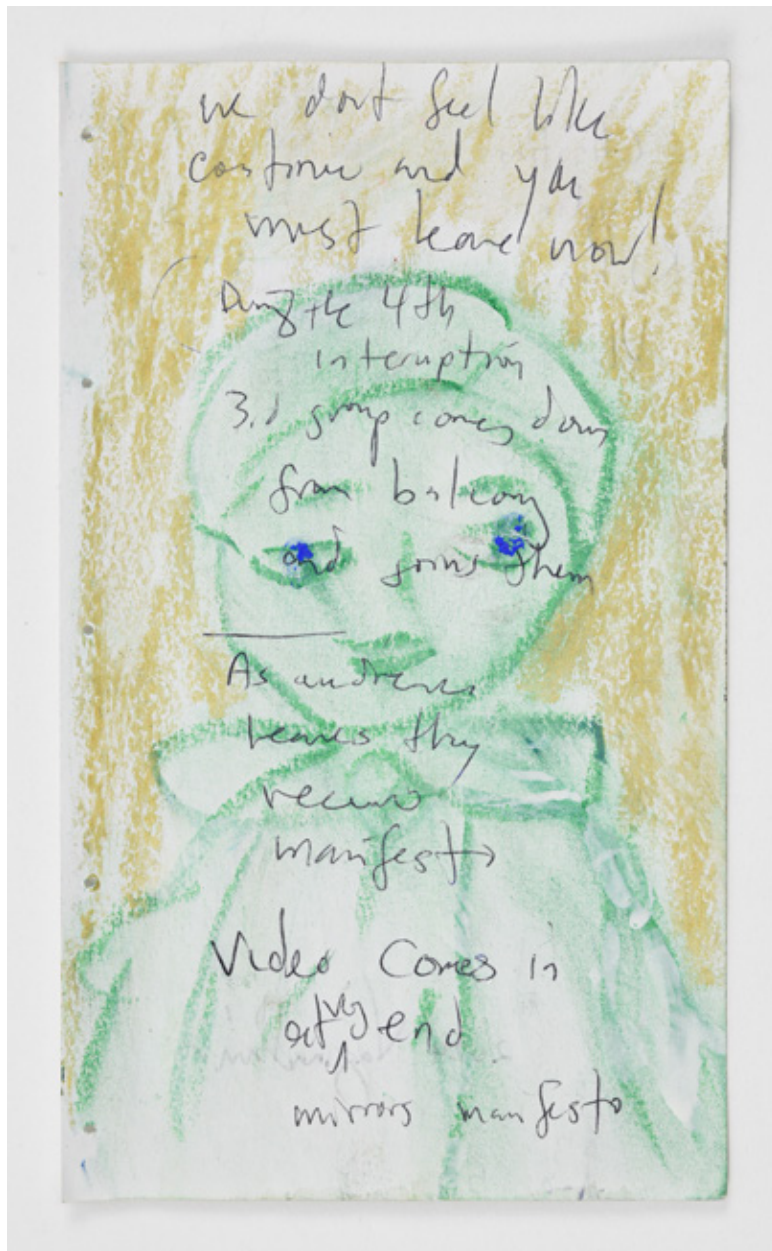 we dont feel like
continue and you
must leave now!
During the 4th
interuption
3.d group comes down
from balcony
and joins them
As audience
leaves they
receive
manifest→
Video Comes in
at very end
mirrors manifesto